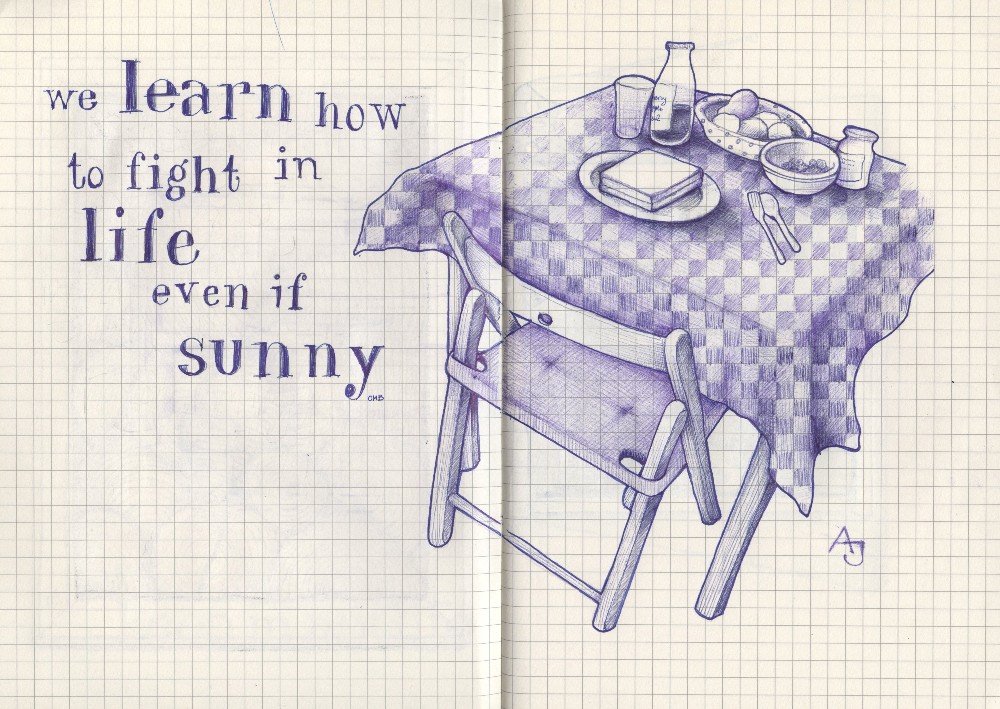 we learn how
to fight in
life
even if
sunny
CMB
AJ